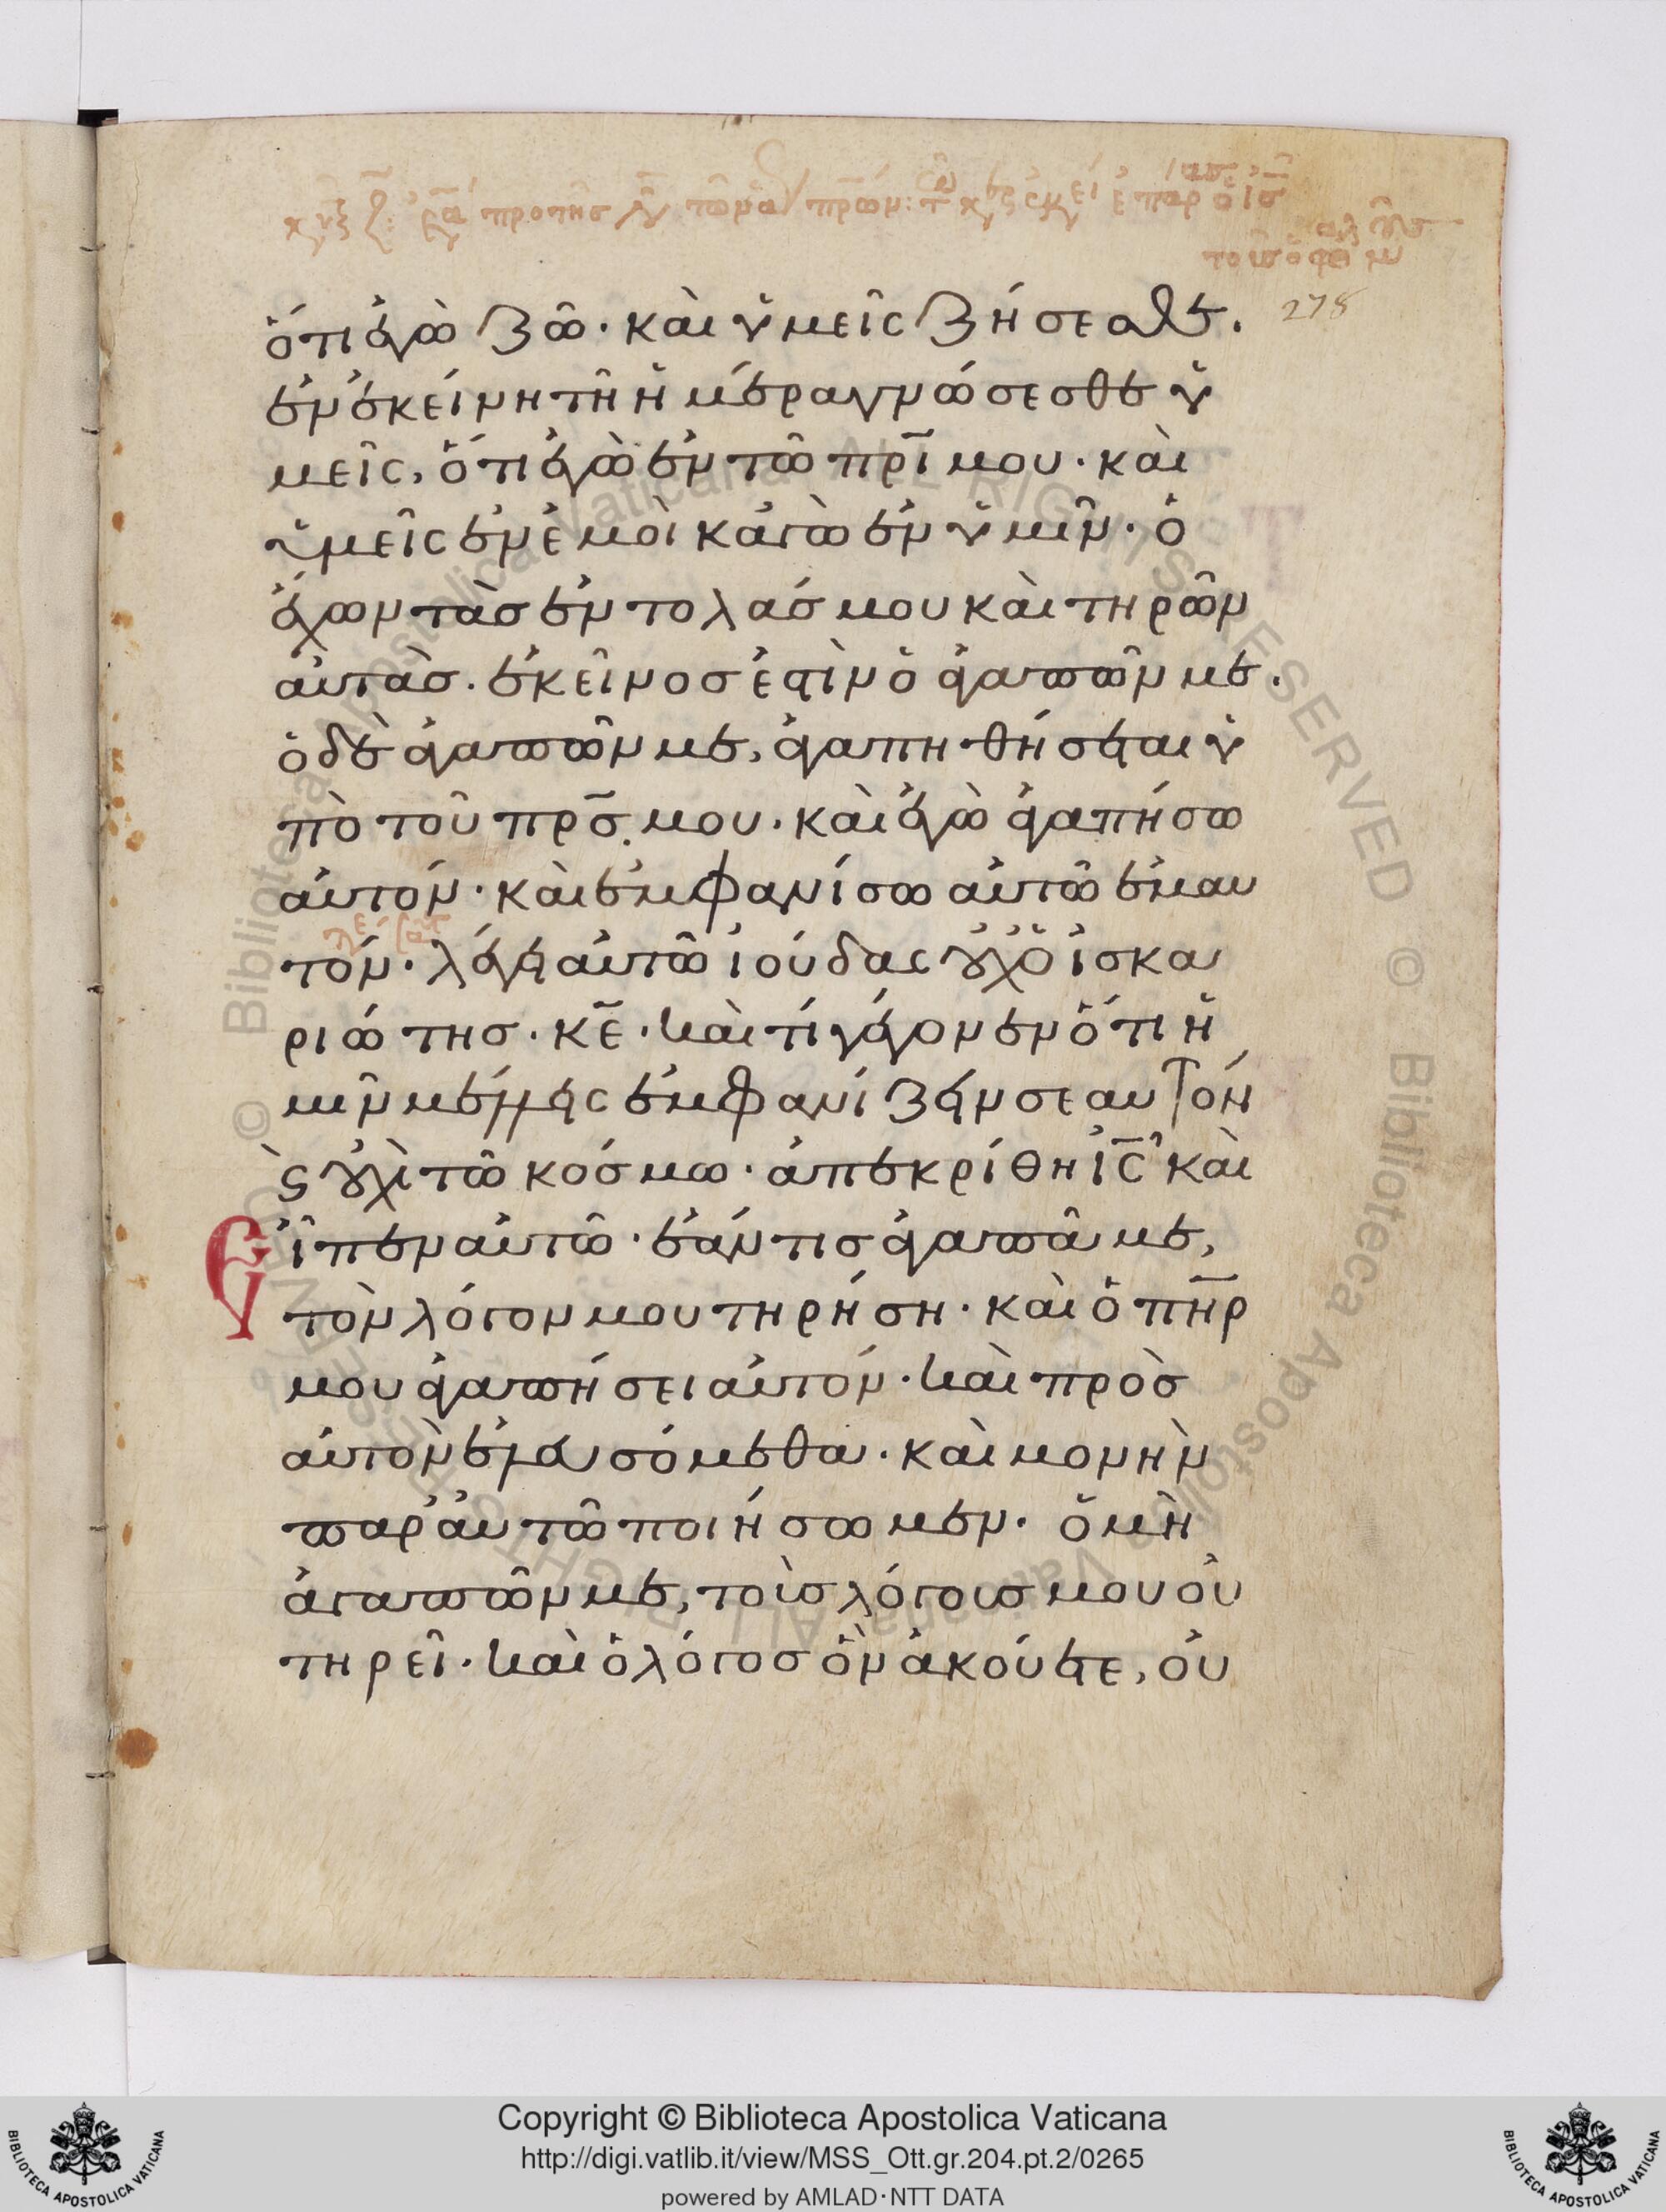 278
ὅτι ἐγὼ ζῶ· καὶ ὑμεῖς ζήσεσθε.
ἐν ἐκείνη τῆ ἡμέρα γνώσεσθε ὑ
μεῖς, ὅτι ἐγὼ ἐν τῶ πρ̅ι μου· καὶ
ὑμεῖς ἐν ἐμοὶ κἀγὼ ἐν ὑμῖν· ὁ
ἔχων τὰσ ἐντολάσ μου καὶ τηρῶν
αὐτὰσ. ἐκεῖνοσ ἐστὶν ὁ ἀγαπῶν με.
ὁ δὲ ἀγαπῶν με, ἀγαπηθήσεται ὑ
πὸ τοῦ πρ̅σ μου. καὶ ἐγὼ ἀγαπήσω
αὐτόν· καὶ ἐμφανίσω αὐτῶ ἐμαυ
τόν. λέγει αὐτῶ ἰούδας οὐχ ὁ ἰσκα
ριώτησ. κ̅ε. καὶ τί γέγονεν ὅτι ἡ
μῖν μέλλεις ἐμφανίζειν σεαυτὸν
ϛ̀ οὐχὶ τῶ κόσμω· ἀπεκρίθη ι̅ς καὶ
Εἶπεν αὐτῶ· ἐάν τισ ἀγαπᾶ με,
τὸν λόγον μου τηρήση· καὶ ὁ πη̅ρ
μου ἀγαπήσει αὐτόν. καὶ πρὸσ
αὐτὸν ἐλευσόμεθα. καὶ μονὴν
παρ' αὐτῶ ποιήσωμεν. ὁ μὴ
ἀγαπῶν με, τοὺσ λόγουσ μου οὐ
τηρεῖ. καὶ ὁ λόγοσ ὃν ἀκούετε, οὐ
Copyright © Biblioteca Apostolica Vaticana
http://digi.vatlib.it/view/MSS_Ott.gr.204.pt.2/0265
powered by AMLAD·NTT DATA
BIBLIOTECA APOSTOLICA VATICANA
BIBLIOTECA APOSTOLICA VATICANA